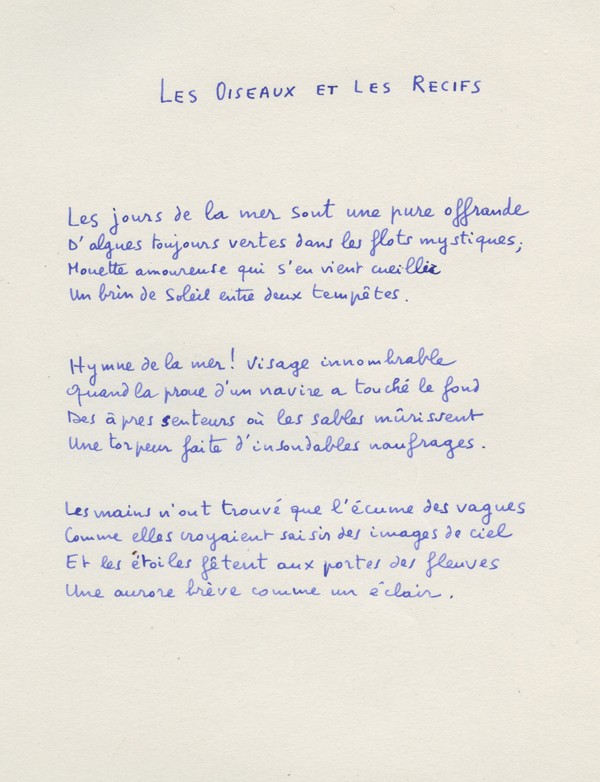 LES OISEAUX ET LES RECIFS
Les jours de la mer sont une pure offrande
D'algues toujours vertes dans les flots mystiques,
Mouette amoureuse qui s'en vient cueillir
Un brin de Soleil entre deux tempêtes.
Hymne de la mer! Visage innombrable
Quand la proue d'un navire a touché le fond
Des âpres senteurs où les sables mûrissent
Une torpeur faite d'insondables naufrages.
Les mains n'ont trouvé que l'écume des vagues
Comme elles croyaient saisir des images de ciel
Et les étoiles fêtent aux portes des fleuves
Une aurore brève comme un éclair.